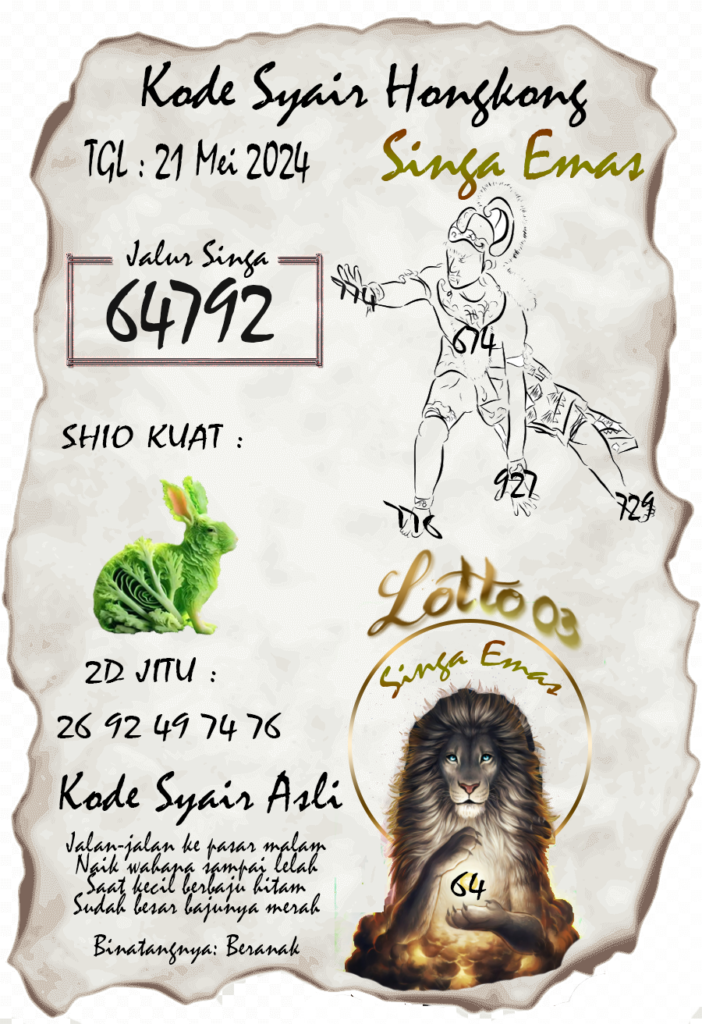 Kode Syair Hongkong
TGL : 21 Mei 2024
Singa Emas
Jalur Singa
64792
774
674
SHIO KUAT :
927
729
776
Lotto 03
Singa Emas
2D JITU :
26 92 49 74 76
Kode Syair Asli
Jalan-jalan ke pasar malam
Naik wahana sampai lelah
Saat kecil berbaju hitam
Sudah besar bajunya merah
64
Binatangnya: Beranak